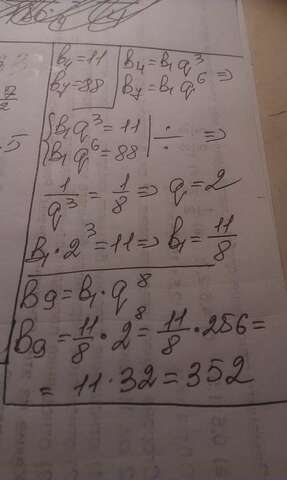 b₄=11 b₄=b₁q³
b₇=88 b₇=b₁q⁶ ⇒
{b₁q³=11 | ÷ ⇒
b₁q⁶=88
1/q³ = 1/8 ⇒ q=2
b₁·2³=11 ⇒ b₁=11/8
b9=b₁·q⁸
b9=11/8·2⁸=11/8·256=
=11·32=352